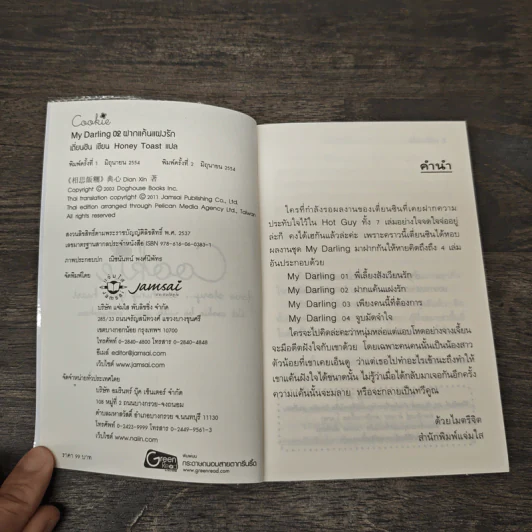 Cookie
My Darling 02 ฝากแค้นแฝงรัก
เตียนซิน เขียน Honey Toast แปล
พิมพ์ครั้งที่ 1 มิถุนายน 2554 พิมพ์ครั้งที่ 2 มิถุนายน 2554
典心 Dian Xin 著
Copyright © 2003 Doghouse Books Inc.
Thai translation copyright © 2011 Jamsai Publishing Co., Ltd.
Thai edition arranged through Pelican Media Agency Ltd., Taiwan
All rights reserved
สงวนลิขสิทธิ์ตามพระราชบัญญัติลิขสิทธิ์ พ.ศ. 2537
เลขมาตรฐานสากลประจำหนังสือ ISBN 978-616-06-0363-1
ภาพประกอบปก ณิชนันทน์ พงศ์นิพัทธ
จัดพิมพ์โดย
jamsai
บริษัท แจ่มใส พับลิชชิ่ง จำกัด
285/33 ถนนจรัญสนิทวงศ์ แขวงบางขุนศรี
เขตบางกอกน้อย กรุงเทพฯ 10700
โทรศัพท์ 0-2840-4800 โทรสาร 0-2840-4848
อีเมล์ editor@jamsai.com
เว็บไซต์ www.jamsai.com
จัดจำหน่ายทั่วประเทศโดย
บริษัท อมรินทร์ บุ๊ค เซ็นเตอร์ จำกัด
108 หมู่ที่ 2 ถนนบางกรวย-จงถนอม
ตำบลมหาสวัสดิ์ อำเภอบางกรวย จ.นนทบุรี 11130
โทรศัพท์ 0-2423-9999 โทรสาร 0-2449-9561-3
เว็บไซต์ www.naiin.com
ราคา 99 บาท
Green Read
พิมพ์ด้วย
กระดาษถนอมสายตากรีนรี้ด
www.greenread.com
คำนำ
ใครที่กำลังรอผลงานของเตี่ยนซินที่เคยฝากความ
ประทับใจไว้ใน Hot Guy ทั้ง 7 เล่มอย่างใจจดใจจ่ออยู่
ล่ะก็ คงได้เฮกันแล้วล่ะค่ะ เพราะคราวนี้เตี่ยนซินได้หอบ
ผลงานชุด My Darling มาฝากกันให้หายคิดถึงถึง 4 เล่ม
อันประกอบด้วย
My Darling 01 พี่เลี้ยงสิงเวียนรัก
My Darling 02 ฝากแค้นแฝงรัก
My Darling 03 เพียงคนนี้ที่ต้องการ
My Darling 04 จูบมัดจำใจ
ใครจะไปคิดล่ะคะว่าหนุ่มหล่อแต่แอบโหดอย่างจางเจี้ยน
จะมีอดีตฝังใจกับเขาด้วย โดยเฉพาะคนคนนั้นเป็นน้องสาว
ตัวน้อยที่เขาเคยเอ็นดู ว่าแต่เธอไปทำอะไรเข้านะถึงทำให้
เขาแค้นฝังใจได้ขนาดนั้น ไม่รู้ว่าเมื่อได้กลับมาเจอกันอีกครั้ง
ความแค้นนั้นจะมลาย หรือจะกลายเป็นทวีคูณ
ด้วยไมตรีจิต
สำนักพิมพ์แจ่มใส